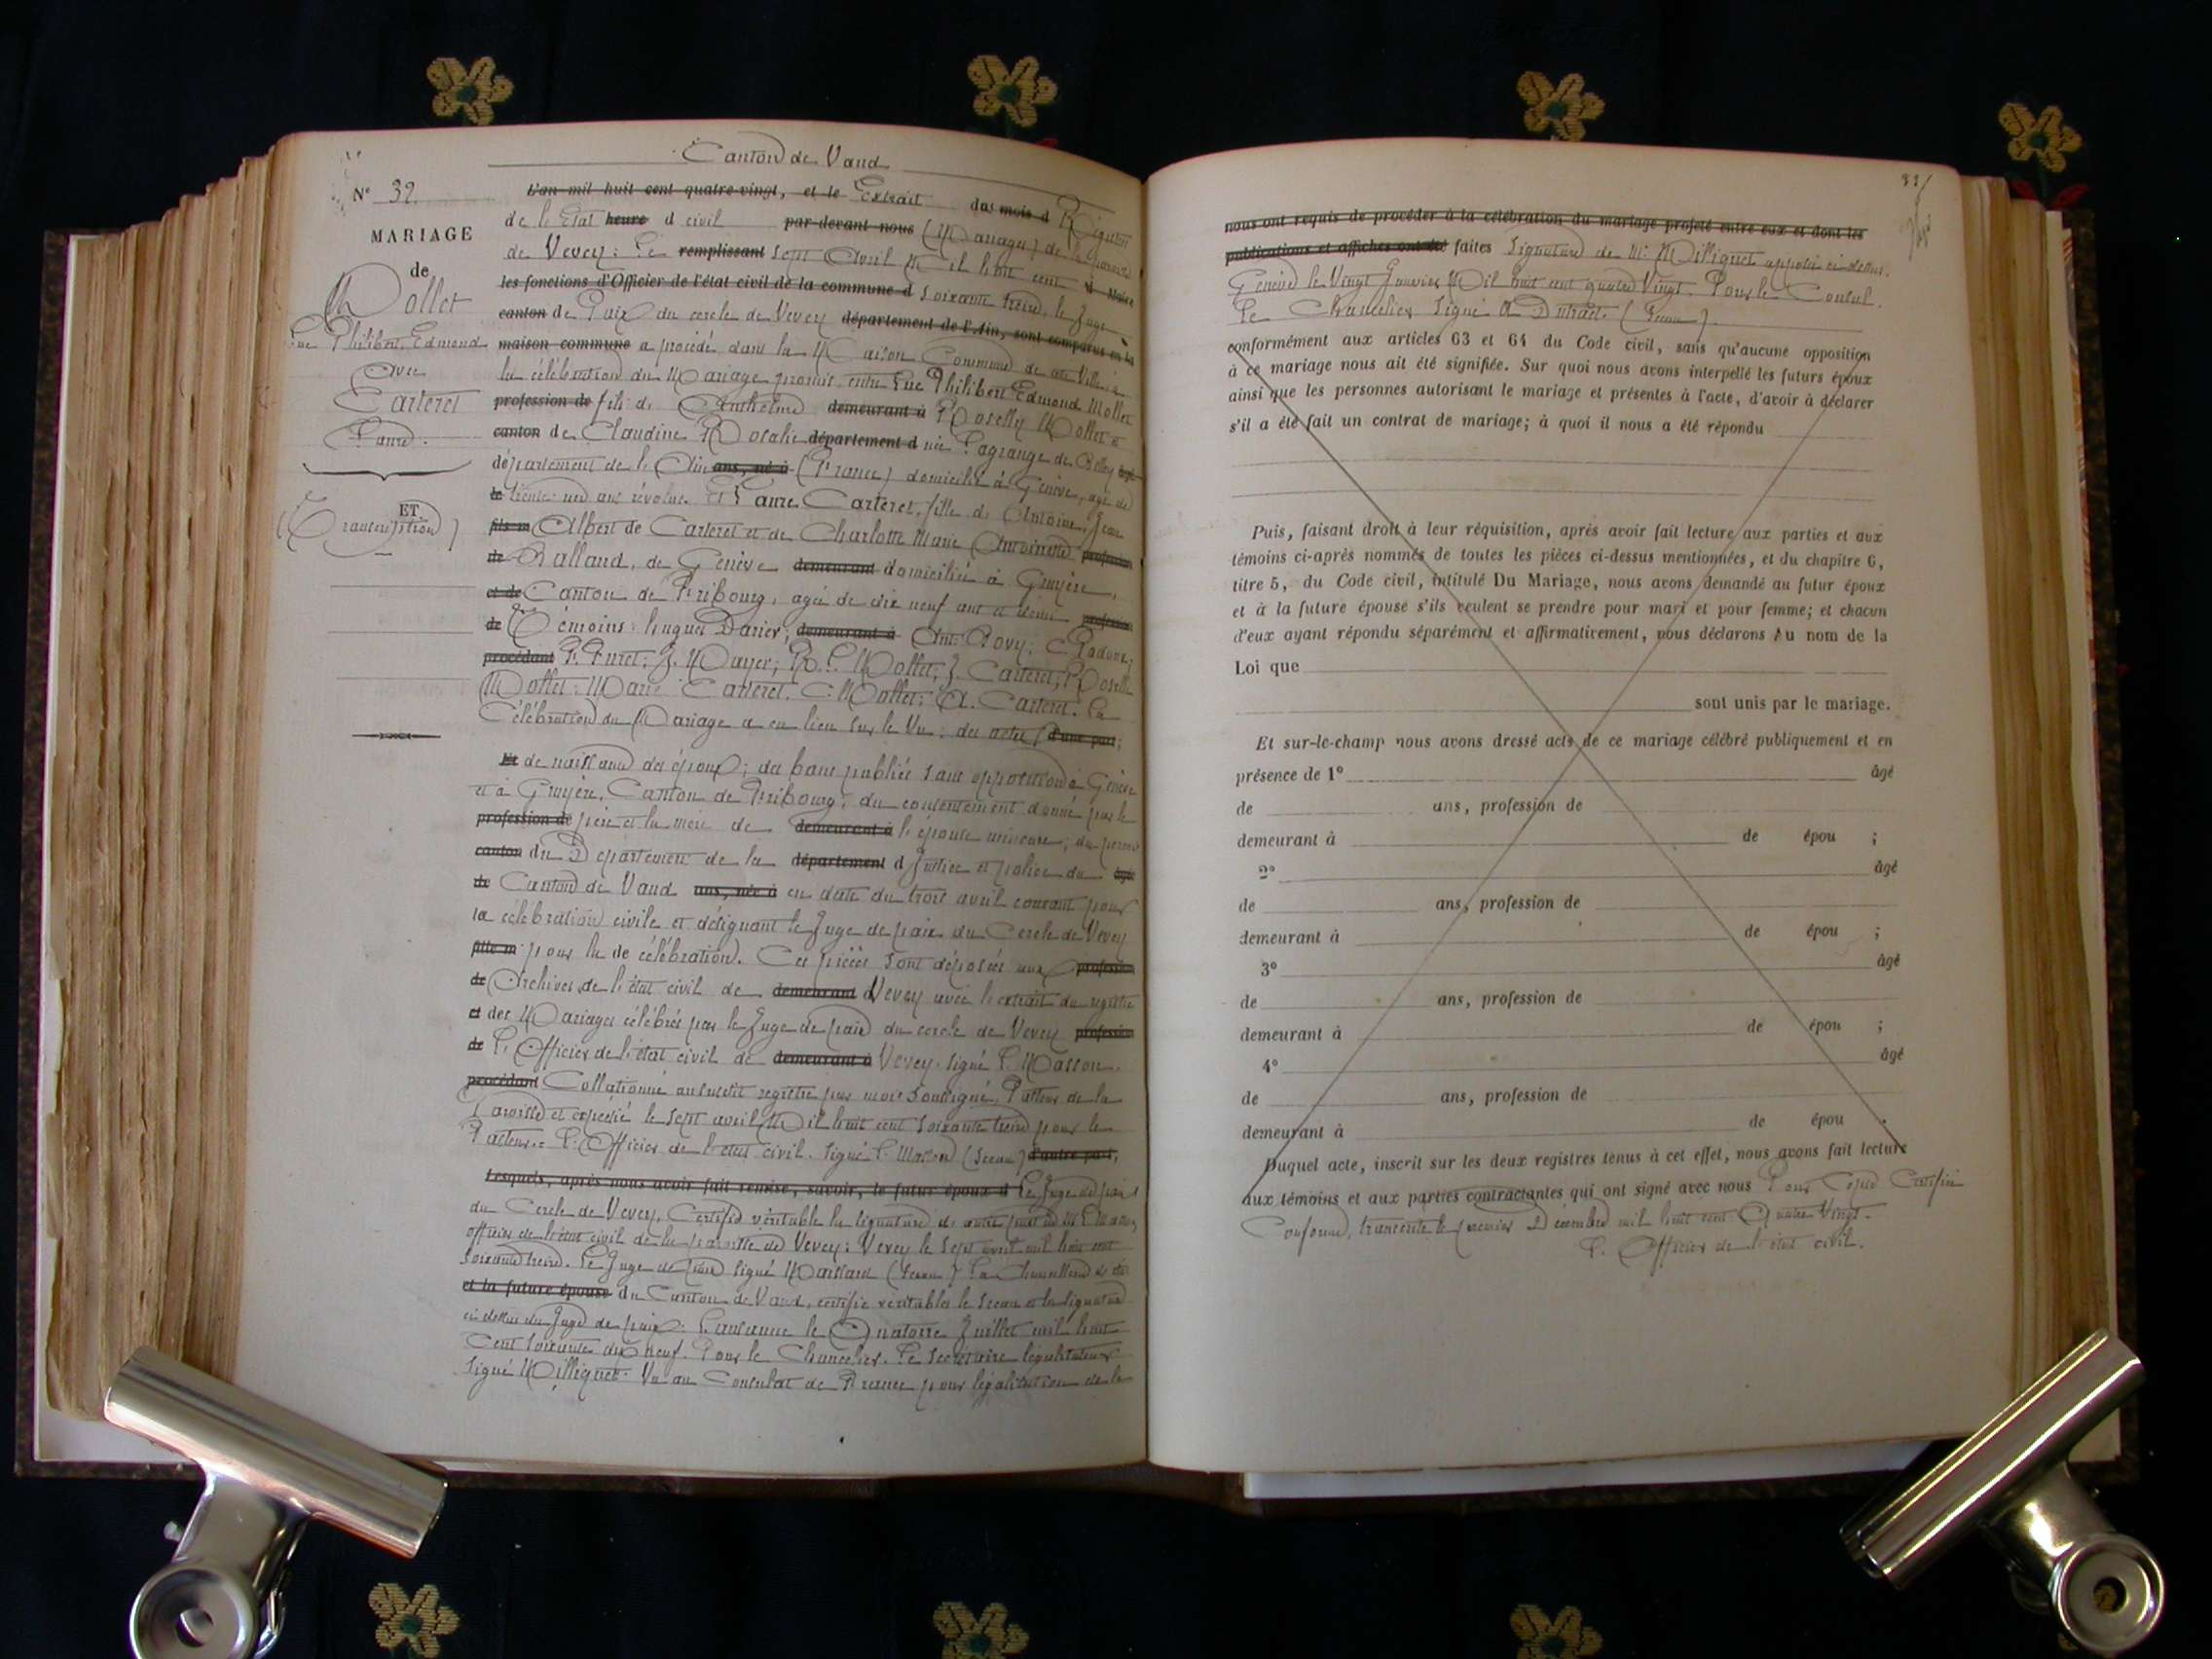 Canton de Vaud
N° 32.
MARIAGE
de
Mollet
Luc Philibert Edmond
avec
Carteret
Laure.
ET
(Transcription)
L'an mil huit cent quatre-vingt, et le Extrait du mois d Régistre
de l'Etat heure d civil par-devant nous (Mariages) de la paroisse
de Vevey: Le remplissant sept Avril Mil huit cent
les fonctions d'Officier de l'état civil de la commune d soixante treize, le Juge
canton de Paix du cercle de Vevey département de l'Ain, sont comparus en la
maison commune a procédé dans la Maison Commune de cette Ville à
la célébration du Mariage promis entre Luc Philibert Edmond Mollet
profession de fils de Anthelme demeurant à Roselly Mollet et
canton de Claudine Rosalie département d née Lagrange de Belley âgé
département de l'Ain ans, né à (France) domicilié à Genève, âgé de
le trente un ans révolus. Et Laure Carteret, fille de Antoine, Jean
fils m Albert de Carteret et de Charlotte Marie Antoinette profession
de Balland, de Genève demeurant domiciliée à Gruyère,
et de Canton de Fribourg, agée de dix neuf ans et demi profession
de Témoins: hugues Darier; demeurant à Ant: Bovy;
procédant F. Turet; J. Mayer; R. L. Mollet; J. Carteret; Roselli
Mollet; Marie Carteret. C. Mollet; A. Carteret. La
Célébration du Mariage a eu lieu sur le Vu: des actes d'une part;
Et de naissance des époux; des bans publiés sans opposition à Genève
et à Gruyère, Canton de Fribourg; du consentement donné par le
profession de père et la mère de demeurant à l'épouse mineure; du permis
canton du Département de la département d Justice et police du âgé
de Canton de Vaud ans, née à en date du trois avril courant pour
la célébration civile et désignant le Juge de paix du Cercle de Vevey
fille m pour la de célébration. Ces pièces sont déposées aux profession
de Archives de l'état civil de demeurant d Vevey avec l'extrait du registre
et des Mariages célébrés par le Juge de paix du cercle de Vevey profession
de L'Officier de l'état civil de demeurant à Vevey. signé L. Masson.
procédant Collationné au susdit registre par moi soussigné, Pasteur de la
Paroisse et expédié le sept avril Mil huit cent soixante treize pour le
Pasteur. L'Officier de l'état civil. signé L. Masson (Sceau) d'autre part,
Lesquels, après nous avoir fait remise, savoir, le futur époux d Le Juge de paix
du Cercle de Vevey, Certifie véritable la signature de autre part de M. L. Masson,
officier de l'état civil de la paroisse de Vevey: Vevey le sept avril mil huit cent
soixante treize. Le Juge de paix signé Maillard (sceau) La Chancellerie d'etat
et la future épouse du Canton de Vaud, certifie véritables le sceau et la signature
ci-dessus du Juge de paix. Lausanne le Quatorze Juillet mil huit
Cent soixante dix neuf. Pour le Chancelier. Le secrétaire législateur
signé Milliquet. Vu au Consulat de France pour légalisation de la
nous ont requis de procéder à la célébration du mariage projeté entre eux et dont les
publications et affiches ont été faites Signature de Mr Milliquet apposée ci-dessus.
Genève le Vingt Janvier Mil huit cent quatre Vingt. Pour le Consul.
Le Chancelier signé (Sceau).
conformément aux articles 63 et 64 du Code civil, sans qu'aucune opposition
à ce mariage nous ait été signifiée. Sur quoi nous avons interpellé les futurs époux
ainsi que les personnes autorisant le mariage et présentes à l'acte, d'avoir à déclarer
s'il a été fait un contrat de mariage; à quoi il nous a été répondu
Puis, faisant droit à leur réquisition, après avoir fait lecture aux parties et aux
témoins ci-après nommés de toutes les pièces ci-dessus mentionnées, et du chapitre 6,
titre 5, du Code civil, intitulé Du Mariage, nous avons demandé au futur époux
et à la future épouse s'ils veulent se prendre pour mari et pour femme; et chacun
d'eux ayant répondu séparément et affirmativement, nous déclarons Au nom de la
Loi que
sont unis par le mariage.
Et sur-le-champ nous avons dressé acte de ce mariage célébré publiquement et en
présence de 1° âgé
de ans, profession de
demeurant à de épou ;
2° âgé
de ans, profession de
demeurant à de épou ;
3° âgé
de ans, profession de
demeurant à de épou ;
4° âgé
de ans, profession de
demeurant à de épou .
Duquel acte, inscrit sur les deux registres tenus à cet effet, nous avons fait lecture
aux témoins et aux parties contractantes qui ont signé avec nous Pour Copie Certifiée
Conforme, transcrite le premier Décembre mil huit cent Quatre Vingt.
L'Officier de l'état civil.